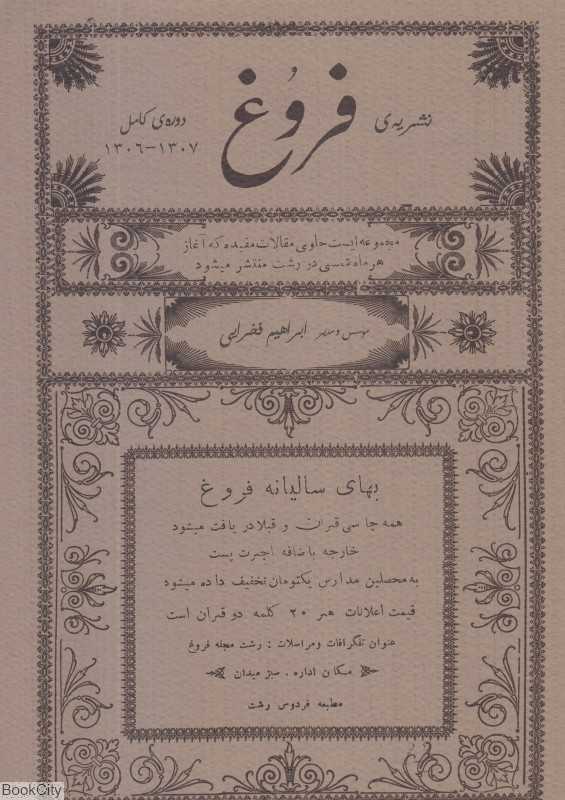 نشریه‌ی
فروُغ
دوره‌ی کامل
۱۳۰۶-۱۳۰۷
مجموعه ایست حاوی مقالات مفیده که آغاز
هر ماه شمسی در رشت منتشر میشود
موسس و مدیر ابراهیم فخرایی
بهای سالیانه فروغ
همه جا سی قران و قبلا دریافت میشود
خارجه باضافه اجرت پست
به محصلین مدارس یکتومان تخفیف داده میشود
قیمت اعلانات هر ۲۰ کلمه دو قران است
عنوان تلگرافات و مراسلات : رشت مجله فروغ
مکان اداره . سبز میدان
مطبعه فردوس رشت
BookCity